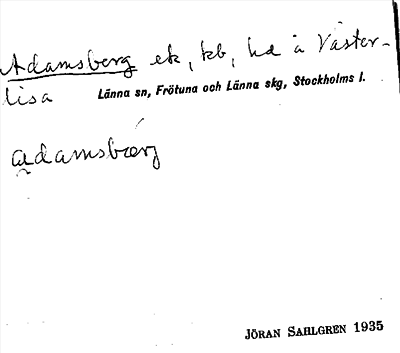 Adamsberg ek, kb, hd å Väster-
lisa Länna sn, Frötuna och Länna skg, Stockholms l.
adamsbærj
JÖRAN SAHLGREN 1935